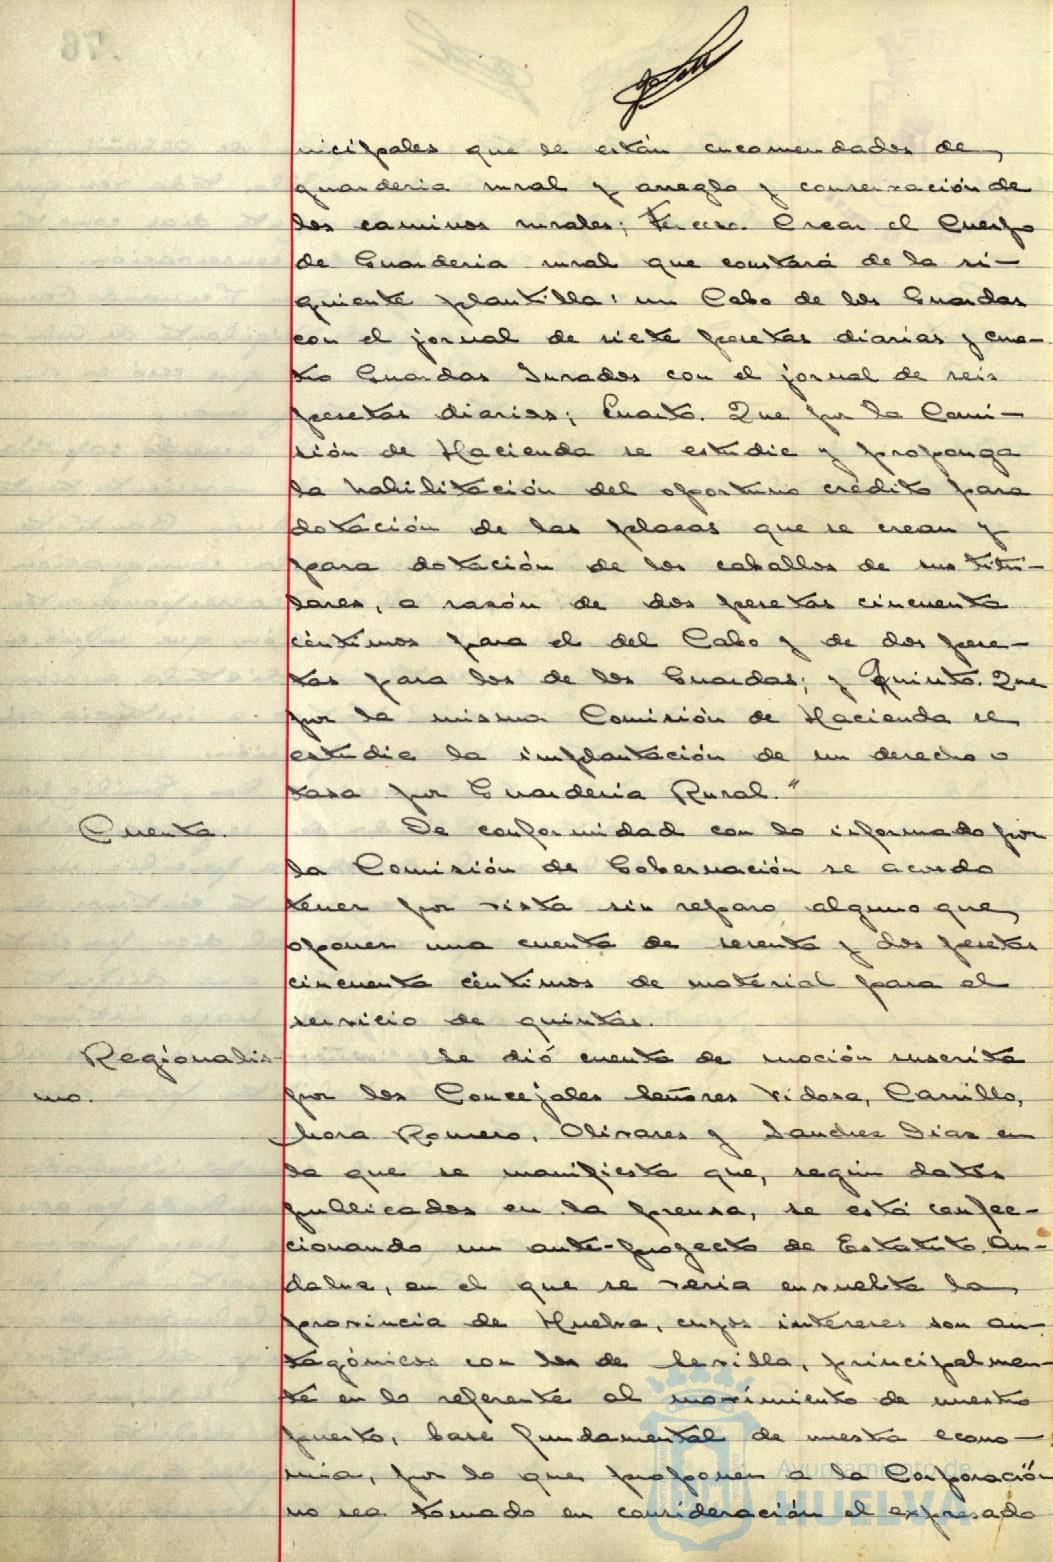 nicipales que le están encomendados de
guardería rural y arreglo y conservación de
los caminos rurales; Tercero. Crear el Cuerpo
de Guardería rural que constará de la si-
guiente plantilla: un Cabo de los Guardas
con el jornal de siete pesetas diarias y cua-
tro Guardas Jurados con el jornal de seis
pesetas diarias; Cuarto. Que por la Comi-
sión de Hacienda se estudie y proponga
la habilitación del oportuno crédito para
dotación de las plazas que se crean y
para dotación de los caballos de sus titu-
lares, a razón de dos pesetas cincuenta
céntimos para el del Cabo y de dos pese-
tas para los de los Guardas; y Quinto. Que
por la misma Comisión de Hacienda se
estudie la implantación de un derecho o
tasa por Guardería Rural."
Cuenta.
De conformidad con lo informado por
la Comisión de Gobernación se acordo
tener por vista sin reparo alguno que
oponer una cuenta de sesenta y dos pesetas
cincuenta céntimos de material para el
servicio de quintas.
Regionalis-
mo.
Se dió cuenta de moción suscrita
por los Concejales Señores Vidosa, Carrillo,
Mora Romero, Olivares y Sanchez Diaz en
la que se manifiesta que, según datos
publicados en la prensa, se está confec-
cionando un ante-proyecto de Estatuto An-
daluz, en el que se vería envuelta la
provincia de Huelva, cuyos intereses son an-
tagónicos con los de Sevilla, principalmen-
te en lo referente al movimiento de nuestro
puerto, base fundamental de nuestra econo-
mia, por lo que proponen a la Corporación
no sea tomado en consideración el expresado
Ayuntamiento de
HUELVA